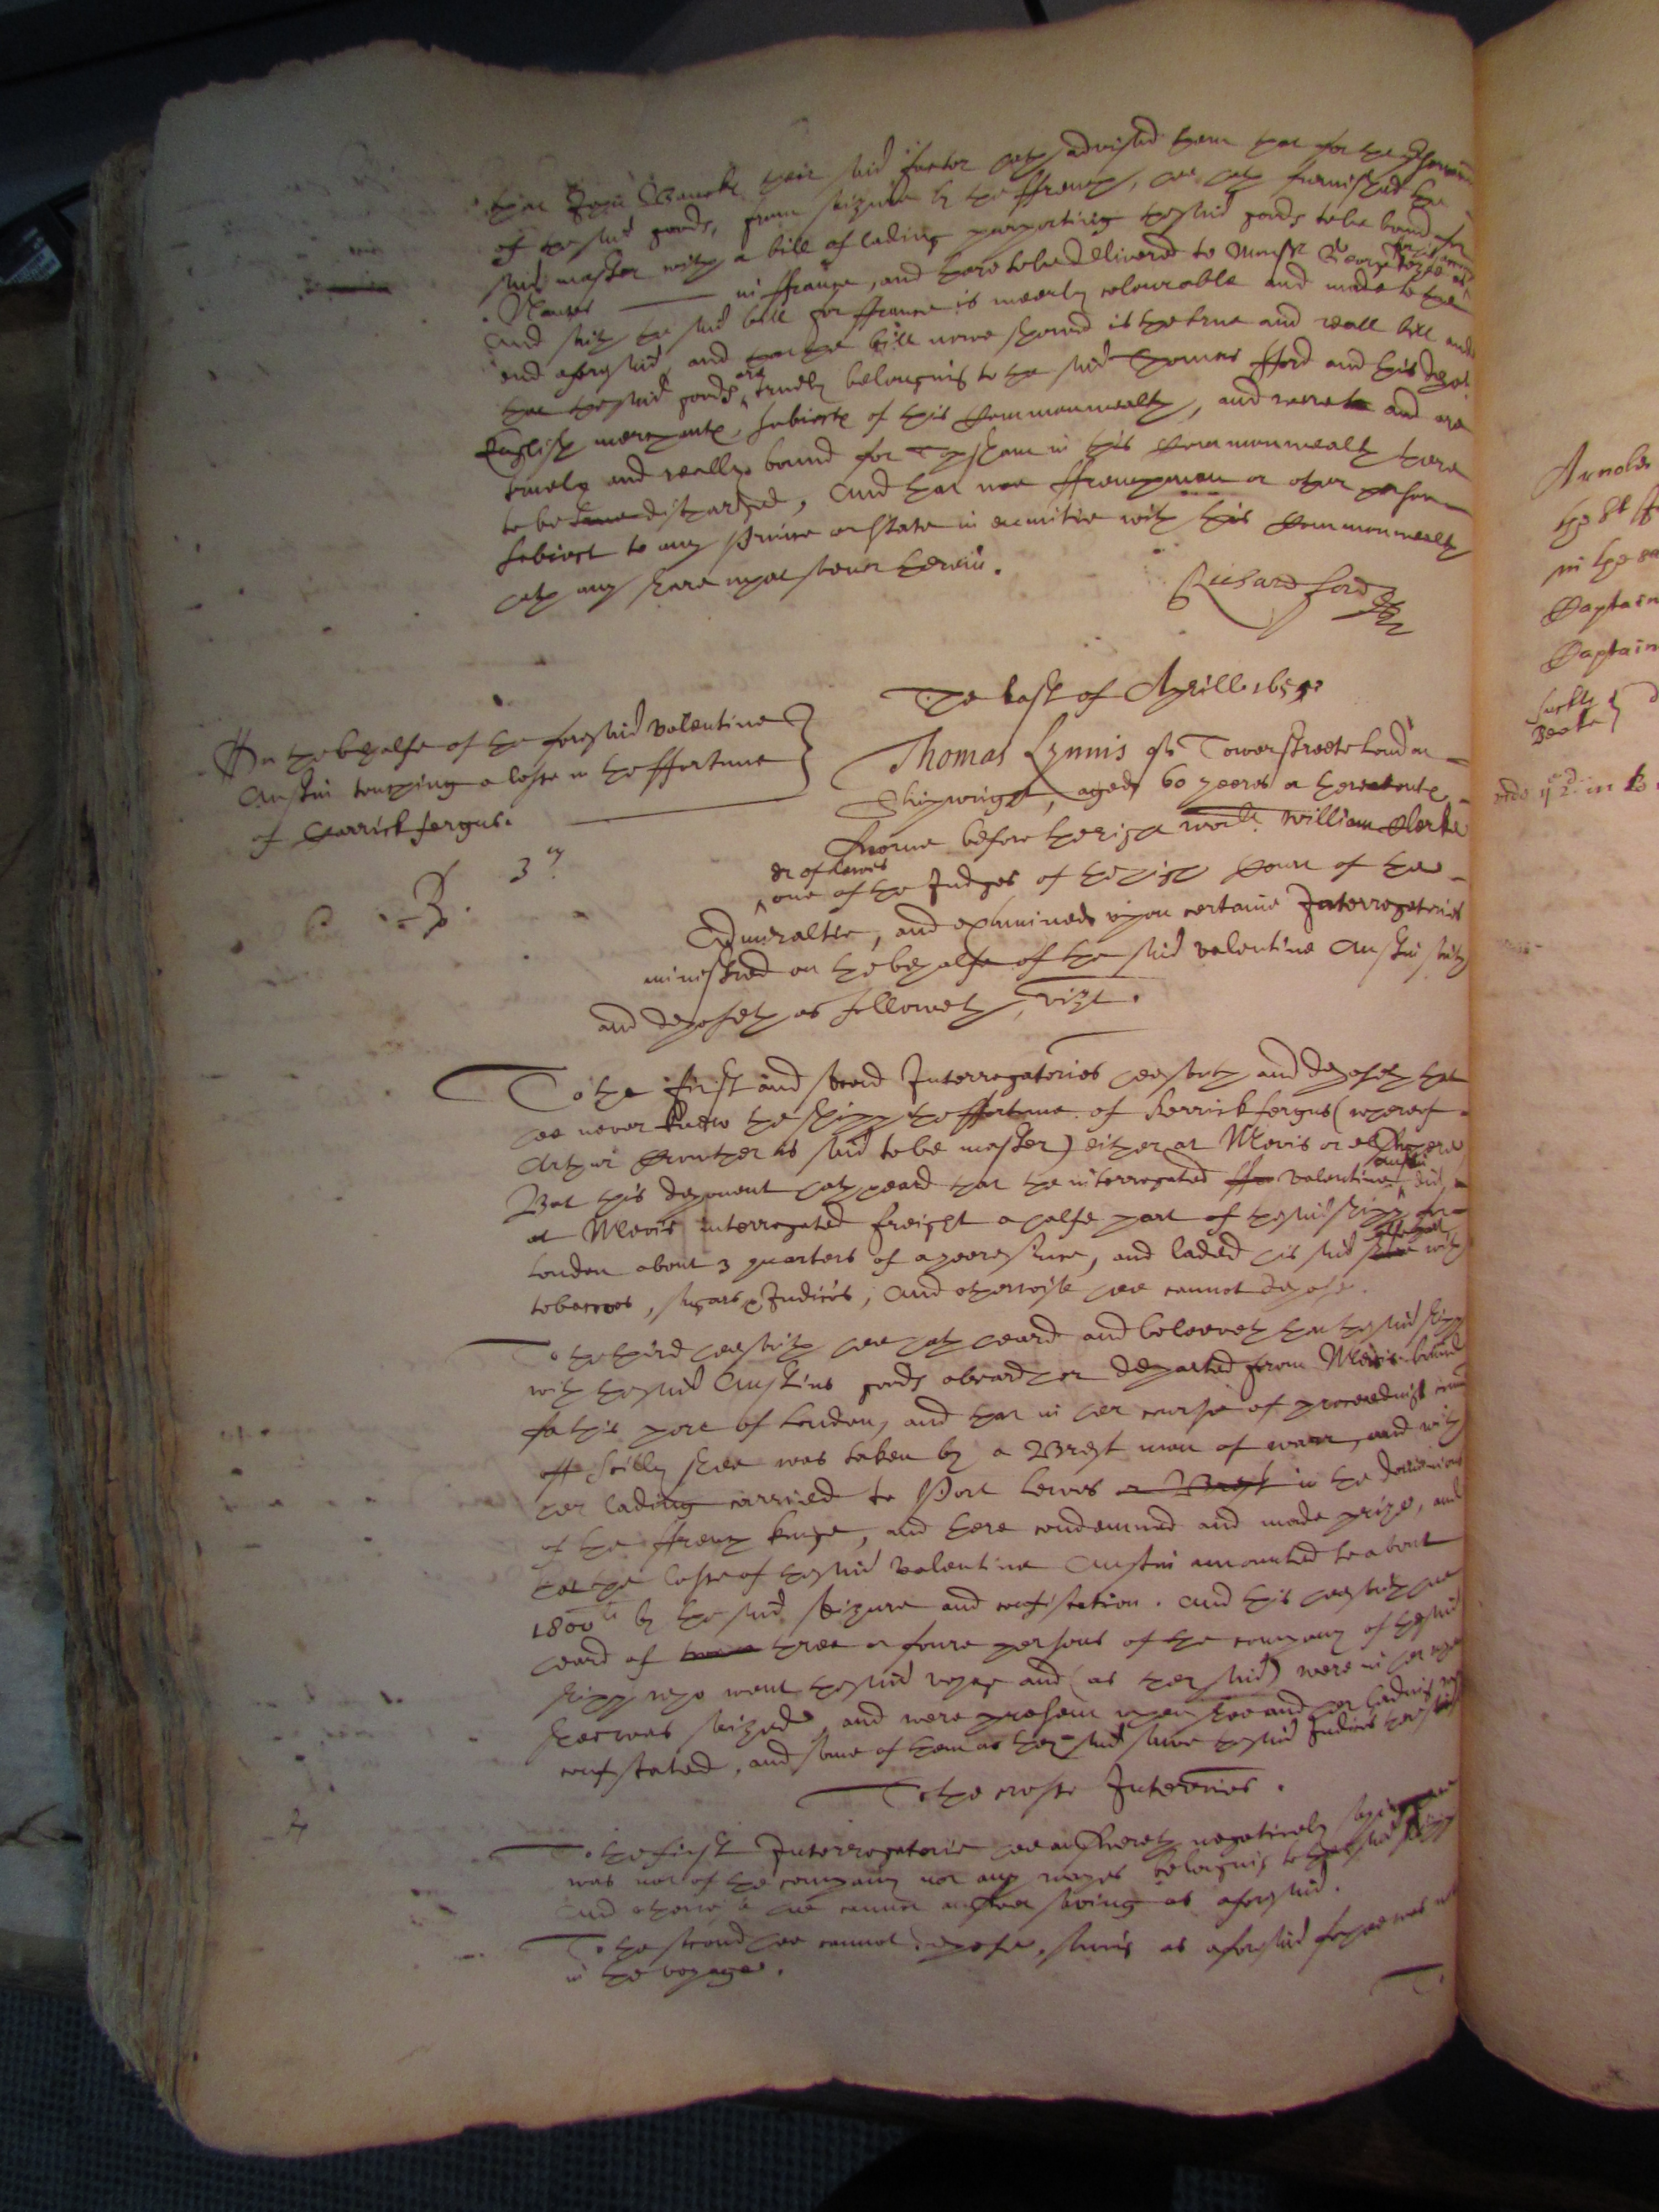 that John Bancke their said factor hath advised them that for the
of the said goods, from seizure by the ffrench, hee hath furnished the
said master with a bill of lading purporting the said goods to be bound for
Nantes ——— in ffrance, and there to be delivered to Monsr George
And saith the said bill for ffrance is meerly colourable and made to the
end aforesaid, and that the bill nowe shewed is the true and reall bill and
that the said goods are truely belonging to the said Thomas fford and his
English merchants, subiects of this Commonwealth, and were and are
truely and really bound for Topsham in this Commonwealth there
to be discharged, And that noe ffrenchman or other person
subiect to any Prince or State in enmitie with this Commonwealth
hath any share whatsoever therein.
Richard ford
The last of Aprill 165
On the behalfe of the foresaid Valentine
Austin touching a losse in the ffortune
of Carrickfergus.
3us
Thomas Lynnis of Towerstreete London
Shipwright, aged 60 yeeres or thereabouts
sworne before the right worll William Clerke
dr of lawes
one of the Judges of the high Court of the
Admiraltie, and examined upon certaine Interrogatories
ministred on the behalfe of the said Valentine Austin saith
and deposeth as followeth, vizt.
To the first and second Interrogatories hee saith and deposeth that
hee never knew the shipp the ffortune of Karrickfergus (whereof
Arthur Crowther is said to be master) either at Mevis or elswhere
But this deponent hath heard that the interrogated Valentine Austin did
at Mevis interrogated freight a halfe part of the said shipp for
London about 3 quarters of a yeere since, and laded his said halfe part with
tobaccoes, sugars & Indicoes, And otherwise hee cannot depose.
To the third hee saith hee hath heard and beleeveth that the said shipp
with the said Austins goods aboard her departed from Mevis bound
for this port of London, and that in her course of proceeding
off Scilly shee was taken by a Brest man of warr, and with
her lading carried to Port Lewis or Brest in the dominions
of the ffrench kinge, and there condemned and made prize, and
that the losse of the said Valentine Austin amounted to about
1800li by the said seizure and confiscation. And this hee saith hee
heard of three or foure persons of the company of the said
shipp who went the said voyage and (as they said) were in her when
shee was seized, and were present when shee and her lading was
confiscated, and some of them as they said sawe the said Indicoes
To the crosse Interries.
To the first Interrogatorie hee answereth negatively saying hee
was not of the company nor any wayes belonging to the said shipp
And otherwise hee cannot answer saving as aforesaid.
To the second hee cannot depose, saving as aforesaid for hee was not
in the voyage.
To
Arnolds
in the
Captain
Captain